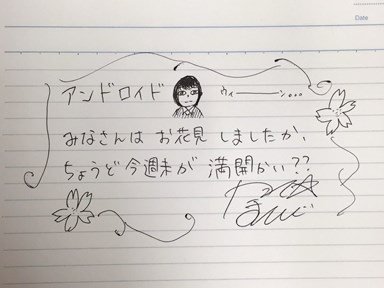 Date
アンドロイド ウィーーン。。。
みなさんは お花見 しましたか、
ちょうど 今週末が 満開かい??